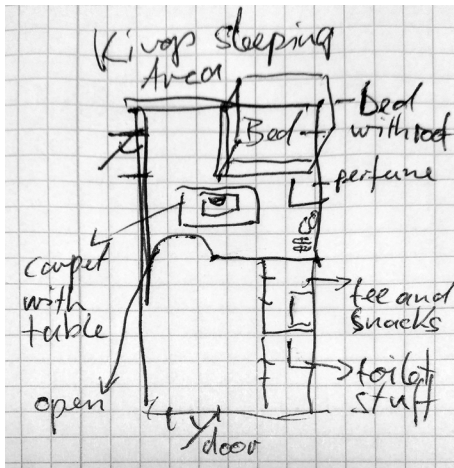 Kings sleeping
Area
Bed
Bed
with roof
perfume
carpet
with
table
tee and
snacks
open
toilet
stuff
door